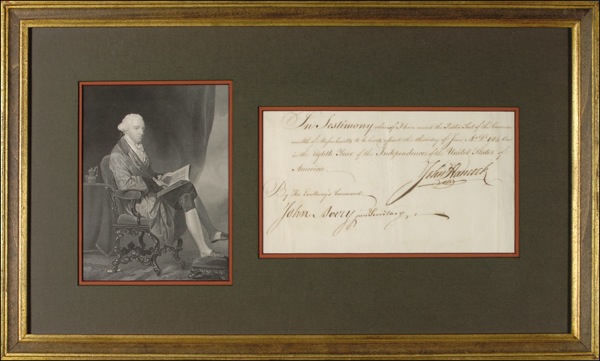 In Testimony whereof I have caused the Public Seal of the Common
wealth of Massachusetts to be hereto affixed this day of June A.D. 1784 and
in the Eighth Year of the Independence of the United States of
America.
John Hancock
By His Excellency's Command,
John Avery jun Secretary